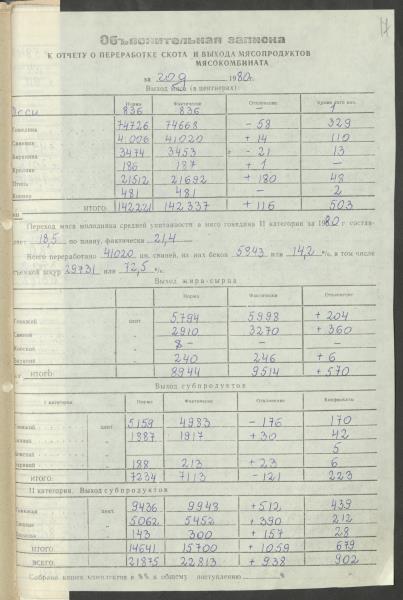 Объяснительная записка
К ОТЧЕТУ О ПЕРЕРАБОТКЕ СКОТА И ВЫХОДА МЯСОПРОДУКТОВ
МЯСОКОМБИНАТА
за год 1980г.
Выход мяса (в центнерах):
Норма Фактически Отклонение
836 836 – 1
Говядина 74726 74668 – 58 329
Свинина 41020 + 14 110
Баранина 3474 3453 – 21 13
Кролики 186 187 + 1 –
Птица 21512 21692 + 180 48
Конина 481 481 – 2
ИТОГО: 142221 142337 + 116 503
Переход мяса молодняка средней упитанности в мясо говядина II категории за 1980 г состав-
ляет 18,5 по плану, фактически 21,4
Всего переработано 41020 цн. свиней, из них бекон 5943 или 14,2 %, в том числе
съемкой шкур 29731 или 72,5 %
Выход жира-сырца
Норма Фактически Отклонение
Говяжий цент 5794 5998 + 204
Свиной " 2910 3270 + 360
Конский " – – –
Бараний " 240 246 + 6
ИТОГО: 8944 9514 + 570
Выход субпродуктов
I категория Норма Фактически Отклонение Конфискаты
Говяжий цент. 5159 4983 – 176 170
Свиной " 1887 1917 + 30 42
Конский " 5
Бараний " 188 213 + 23 6
ИТОГО: 7234 7113 – 121 223
II категория. Выход субпродуктов
Говяжий цент. 9436 9948 + 512 439
Свиные " 5062 5452 + 390 212
" 143 300 + 157 28
ИТОГО: 14641 15700 + 1059 679
ВСЕГО: 21875 22813 + 938 902
Собрано кишок комплектов в %% к общему поступлению %